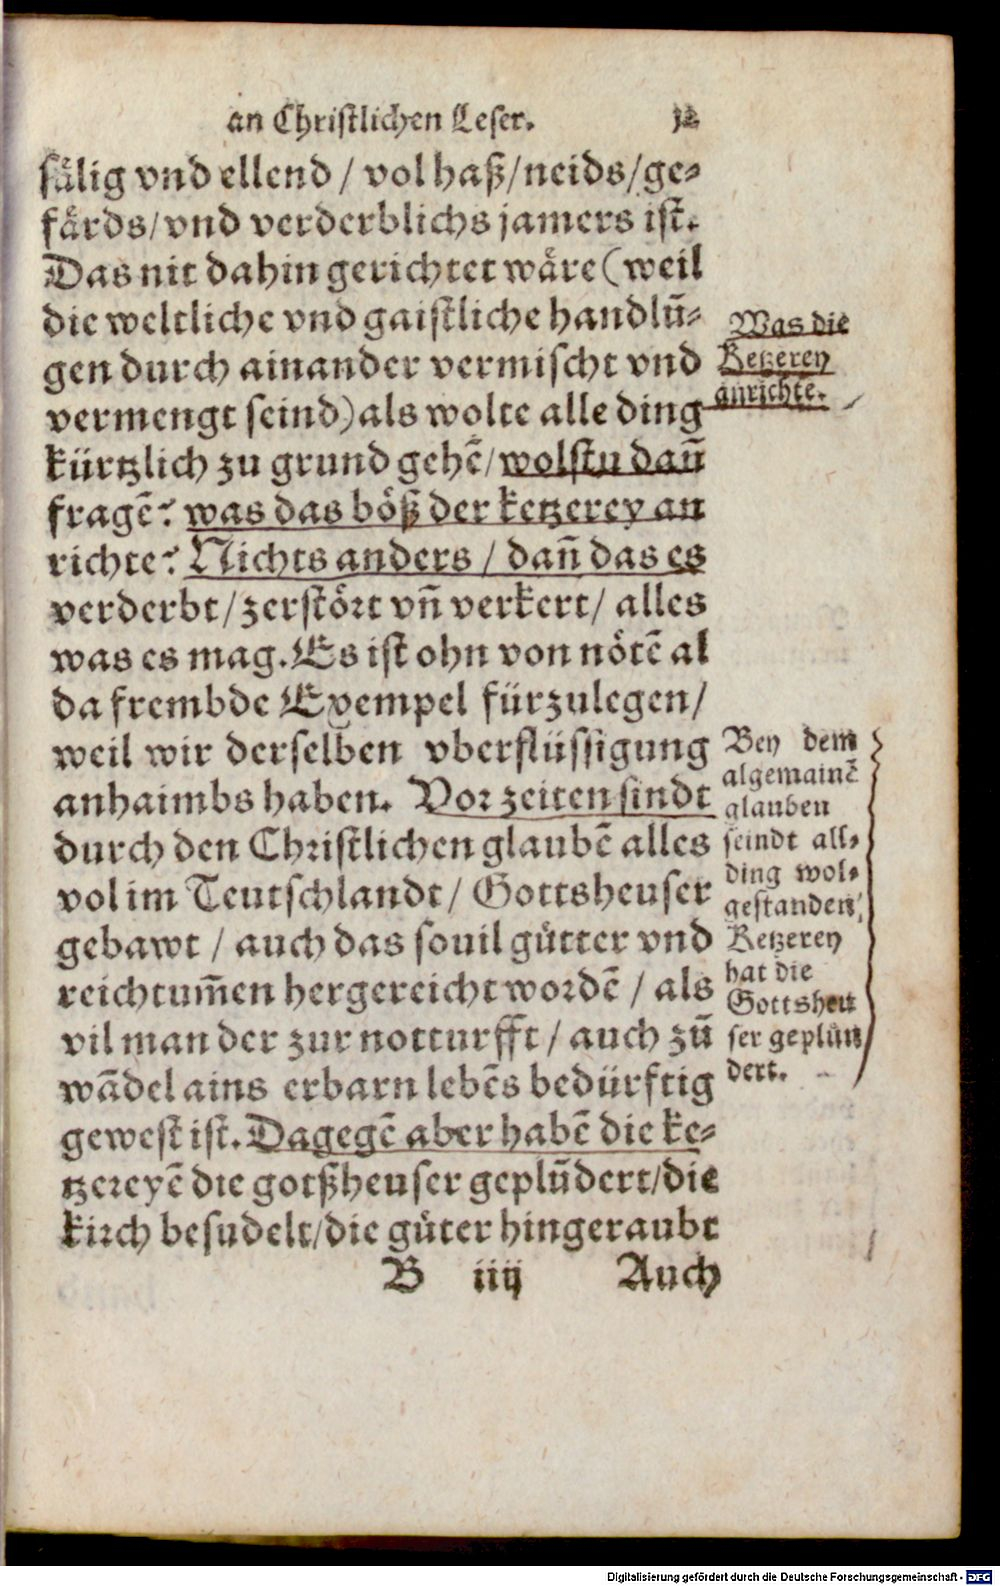 an Christlichen Leser. 12
sålig vnd ellend / vol haß/neids/ge⸗
fårds/vnd verderblichs jamers ist.
Das nit dahin gerichtet wåre (weil
die weltliche vnd gaistliche handlũ⸗
gen durch ainander vermischt vnd
vermengt seind) als wolte alle ding
kürtzlich zu grund gehẽ/wolstu dañ
fragẽ? was das böß der ketzerey an
richte? Nichts anders / dañ das es
verderbt/zerstört vñ verkert/ alles
was es mag. Es ist ohn von nötẽ al
da frembde Exempel fürzulegen/
weil wir derselben vberflüssigung
anhaimbs haben. Vor zeiten sindt
durch den Christlichen glaubẽ alles
vol im Teutschlandt/ Gottsheuser
gebawt / auch das souil gůtter vnd
reichtum̃en hergereicht wordẽ / als
vil man der zur notturfft / auch zũ
wãdel ains erbarn lebẽs bedürftig
gewest ist. Dagegẽ aber habẽ die ke⸗
tzereyẽ die gotßheuser geplũdert/die
kirch besudelt/die gůter hingeraubt
B iiij Auch
Was die
Ketzerey
anrichte.
Bey dem
algemainẽ
glauben
seindt all⸗
ding wol⸗
gestanden,
Ketzerey
hat die
Gottsheu
ser geplün
dert.
Digitalisierung gefördert durch die Deutsche Forschungsgemeinschaft - DFG